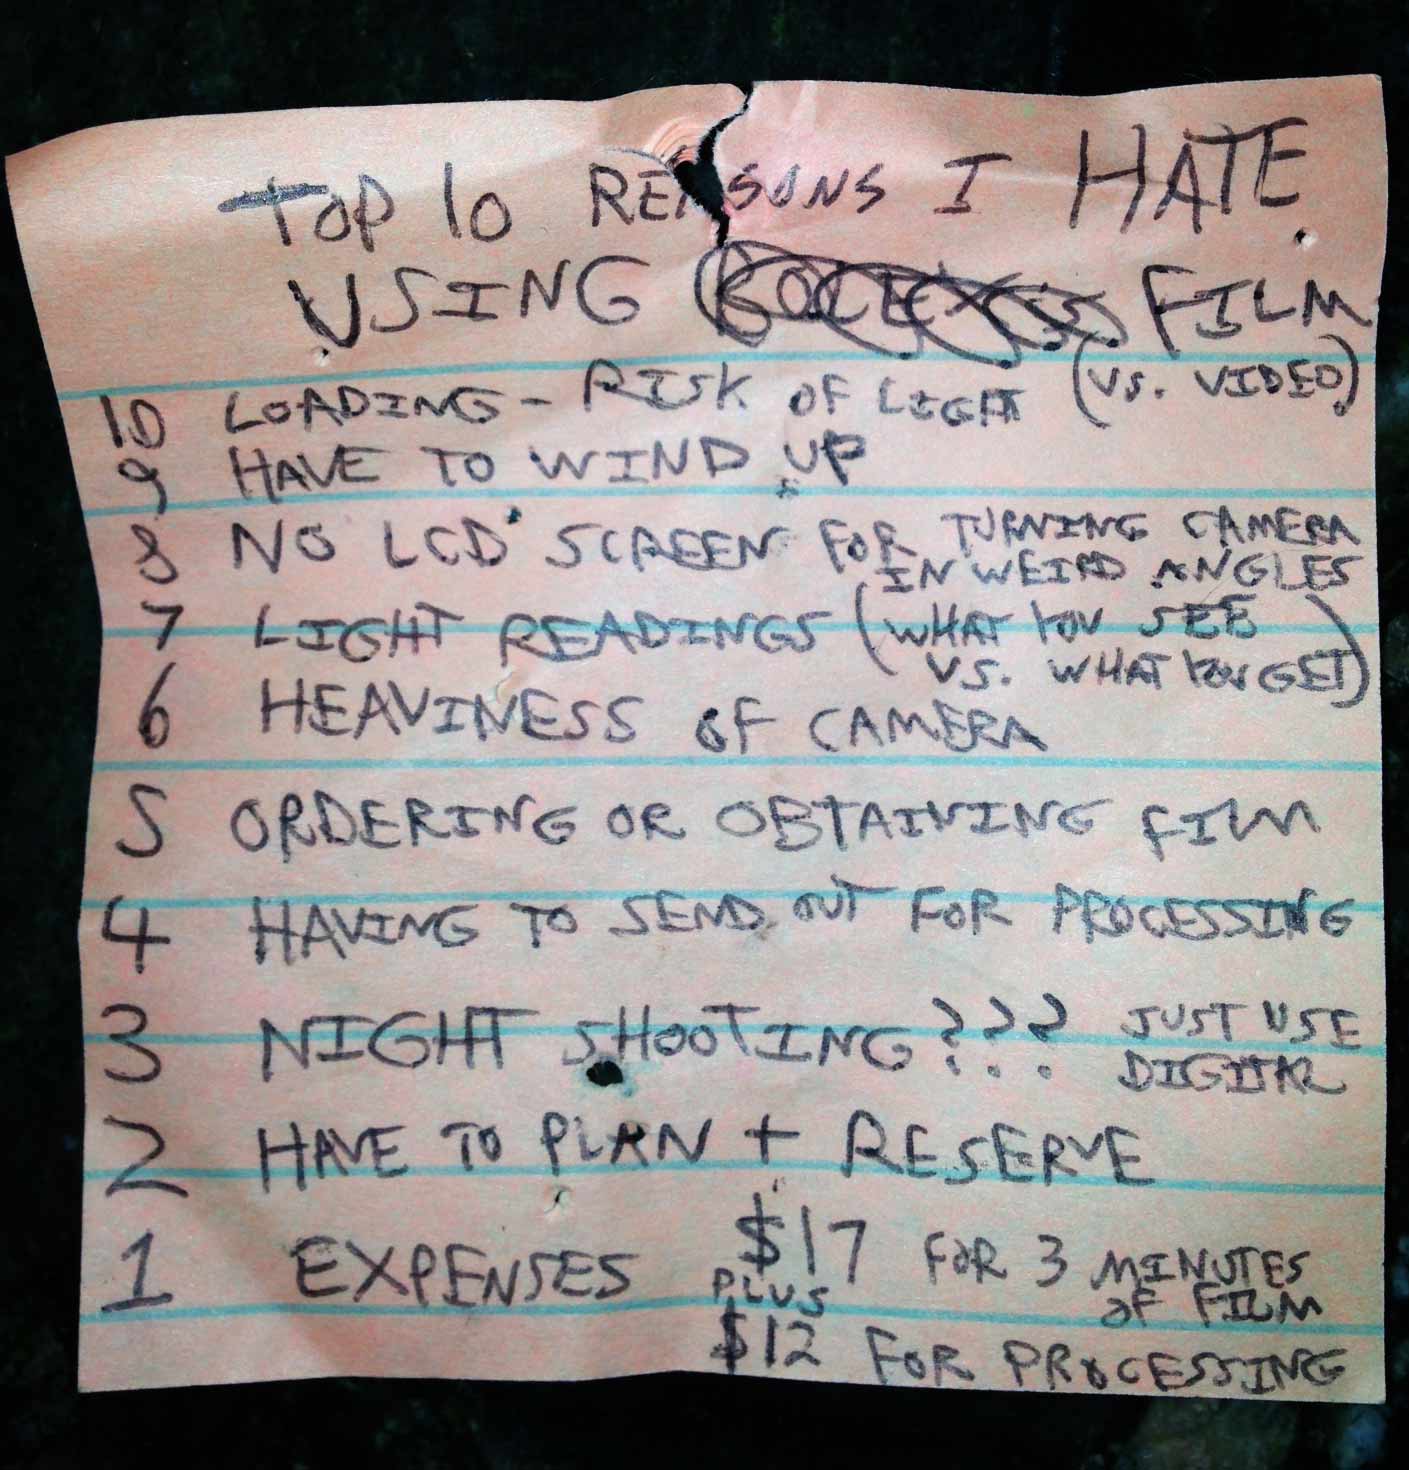 TOP 10 REASONS I HATE
USING BOLEXES FILM
(VS. VIDEO)
10 LOADING - RISK OF LIGHT
9 HAVE TO WIND UP
8 NO LCD SCREEN FOR TURNING CAMERA
IN WEIRD ANGLES
7 LIGHT READINGS (WHAT YOU SEE
VS. WHAT YOU GET)
6 HEAVINESS OF CAMERA
5 ORDERING OR OBTAINING FILM
4 HAVING TO SEND OUT FOR PROCESSING
3 NIGHT SHOOTING??? JUST USE
DIGITAL
2 HAVE TO PLAN + RESERVE
1 EXPENSES $17 FOR 3 MINUTES
PLUS OF FILM
$12 FOR PROCESSING